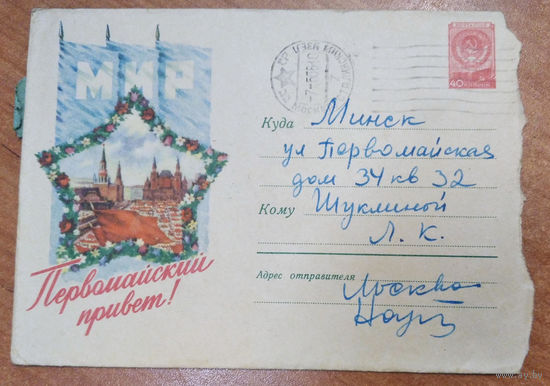 МИР
Первомайский
привет!
40
Куда Минск
ул Первомайская
дом 34 кв 32
Кому Шуклиной
Л. К.
Адрес отправителя Москва
www.ay.by